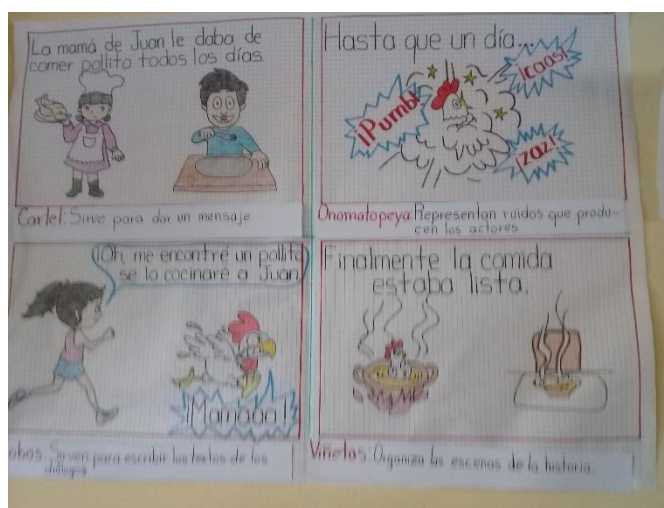 La mamá de Juan le daba de
comer pollito todos los días.
Cartel: Sirve para dar un mensaje
Hasta que un día...
¡Pumb!
¡caas!
¡zaz!
Onomatopeya: Representan ruidos que produ-
cen los actores
¡Oh, me encontré un pollito
se lo cocinaré a Juan
¡Mamáaa!
obos: Sirven para escribir los textos de los
diálogos
Finalmente la comida
estaba lista.
Viñetas: Organiza las escenas de la historia.